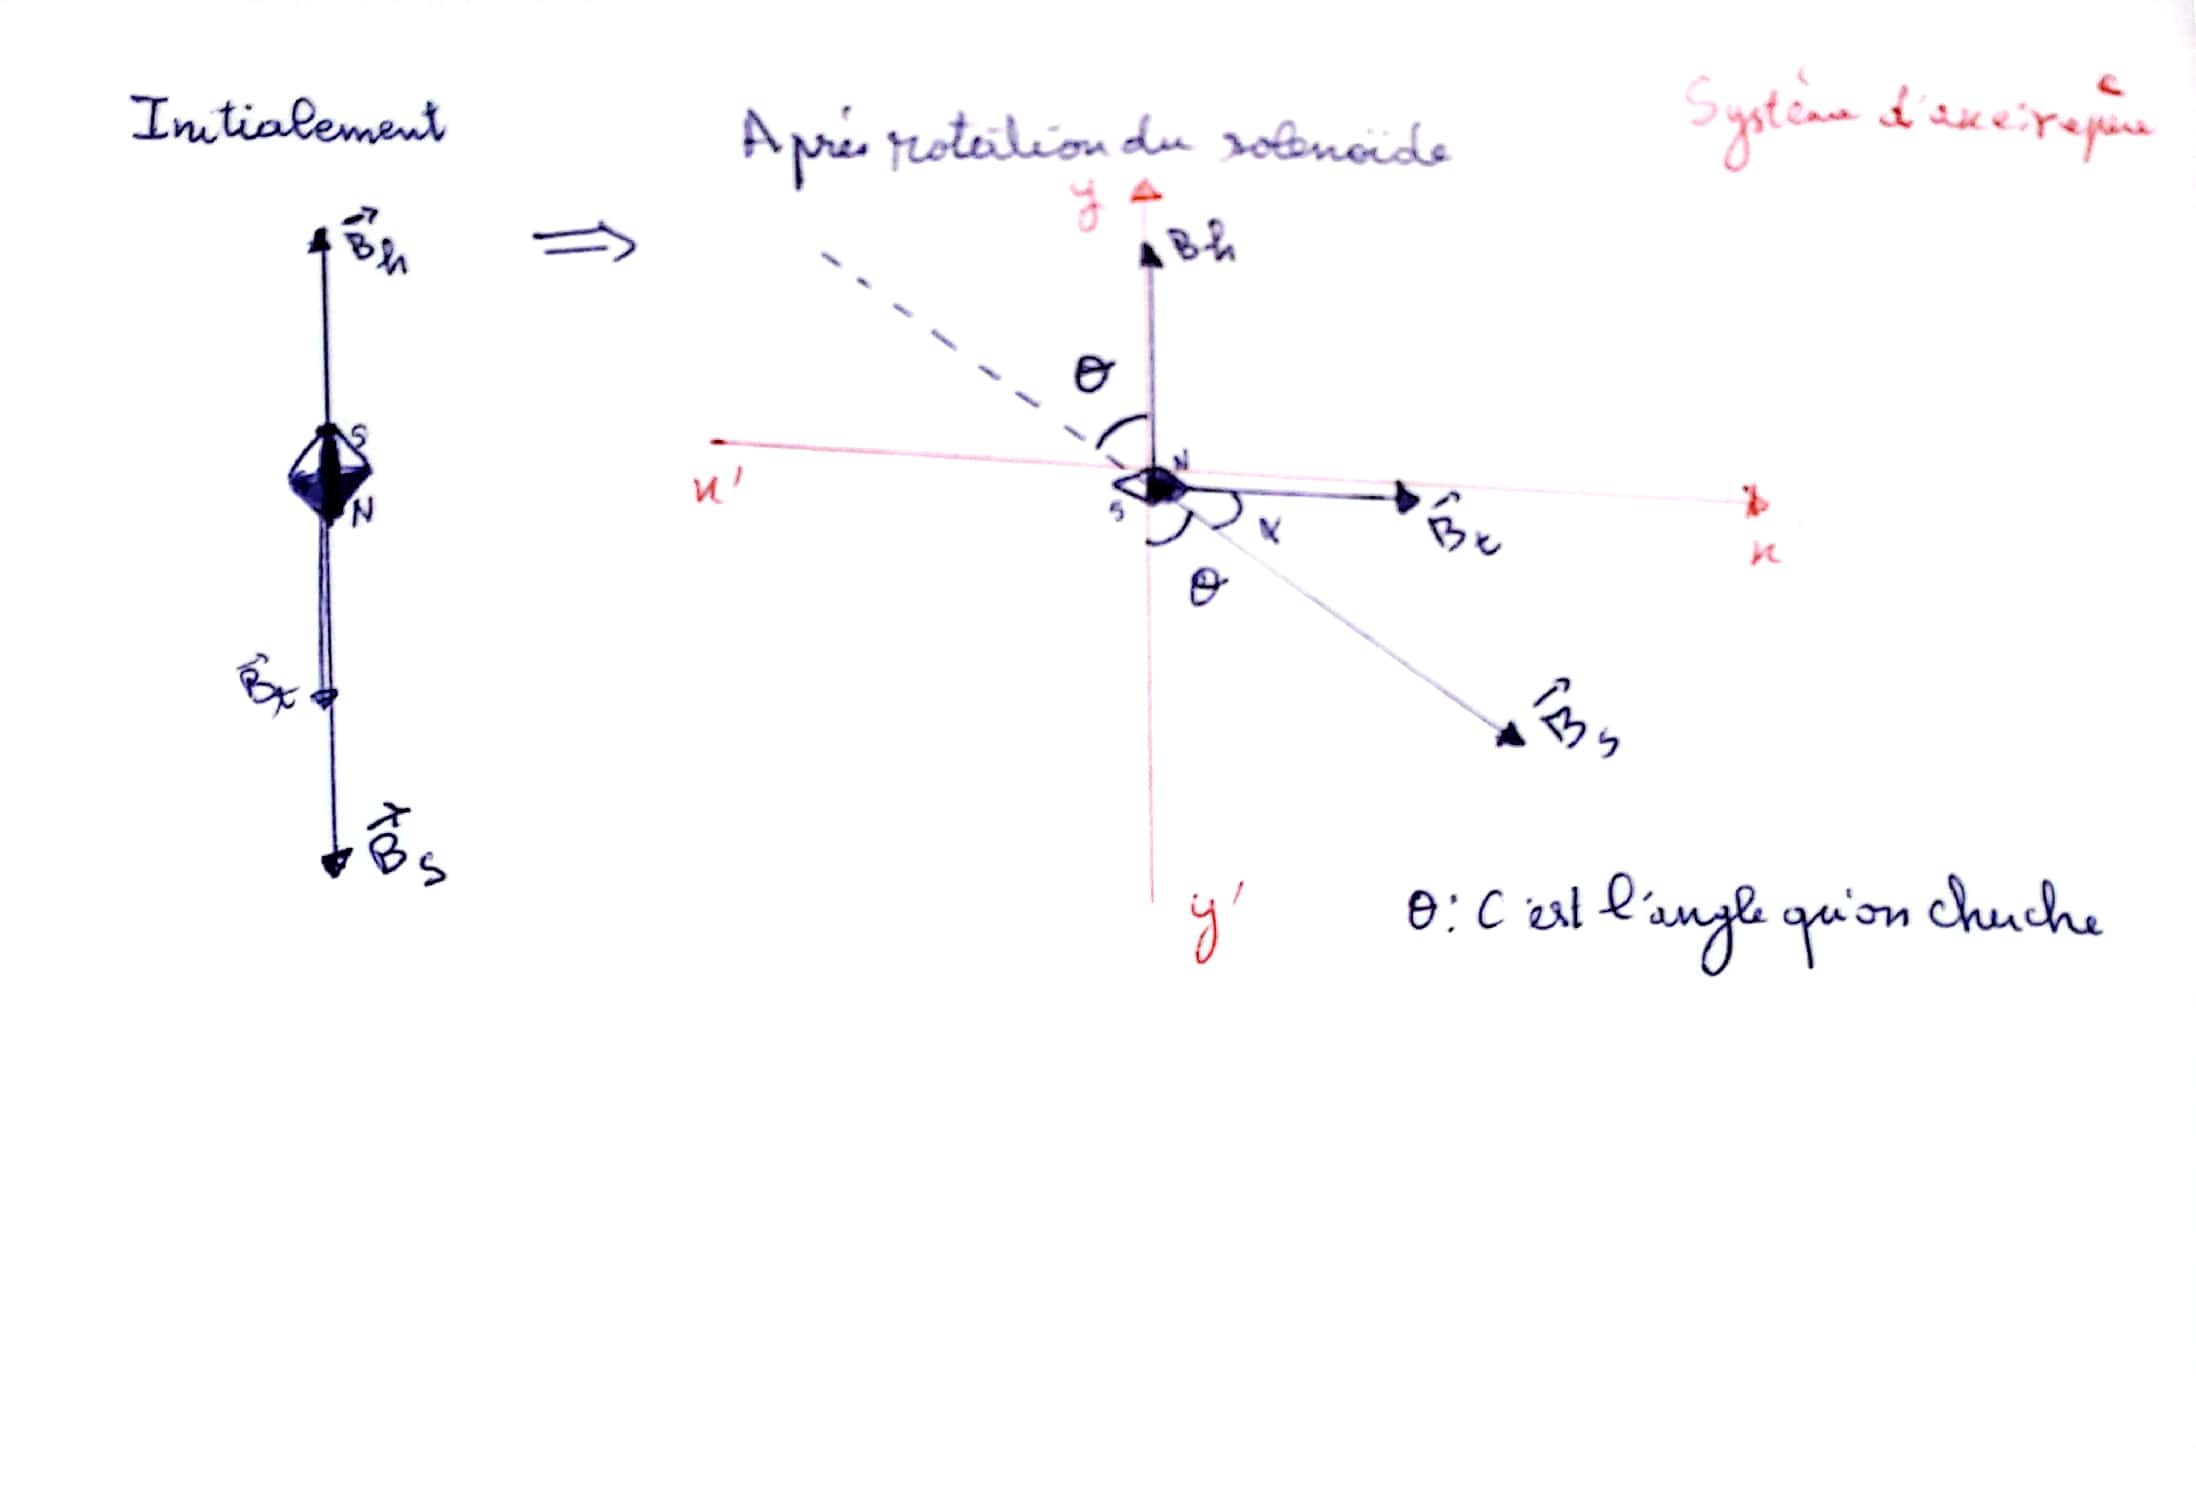 Initialement
Aprés rotation du solenoïde
Système d'axe : repère
B⃗h
y
Bh
θ
S
N
x'
N
S
B⃗t
α
x
θ
B⃗t
B⃗s
B⃗s
y'
θ : C'est l'angle qu'on cherche